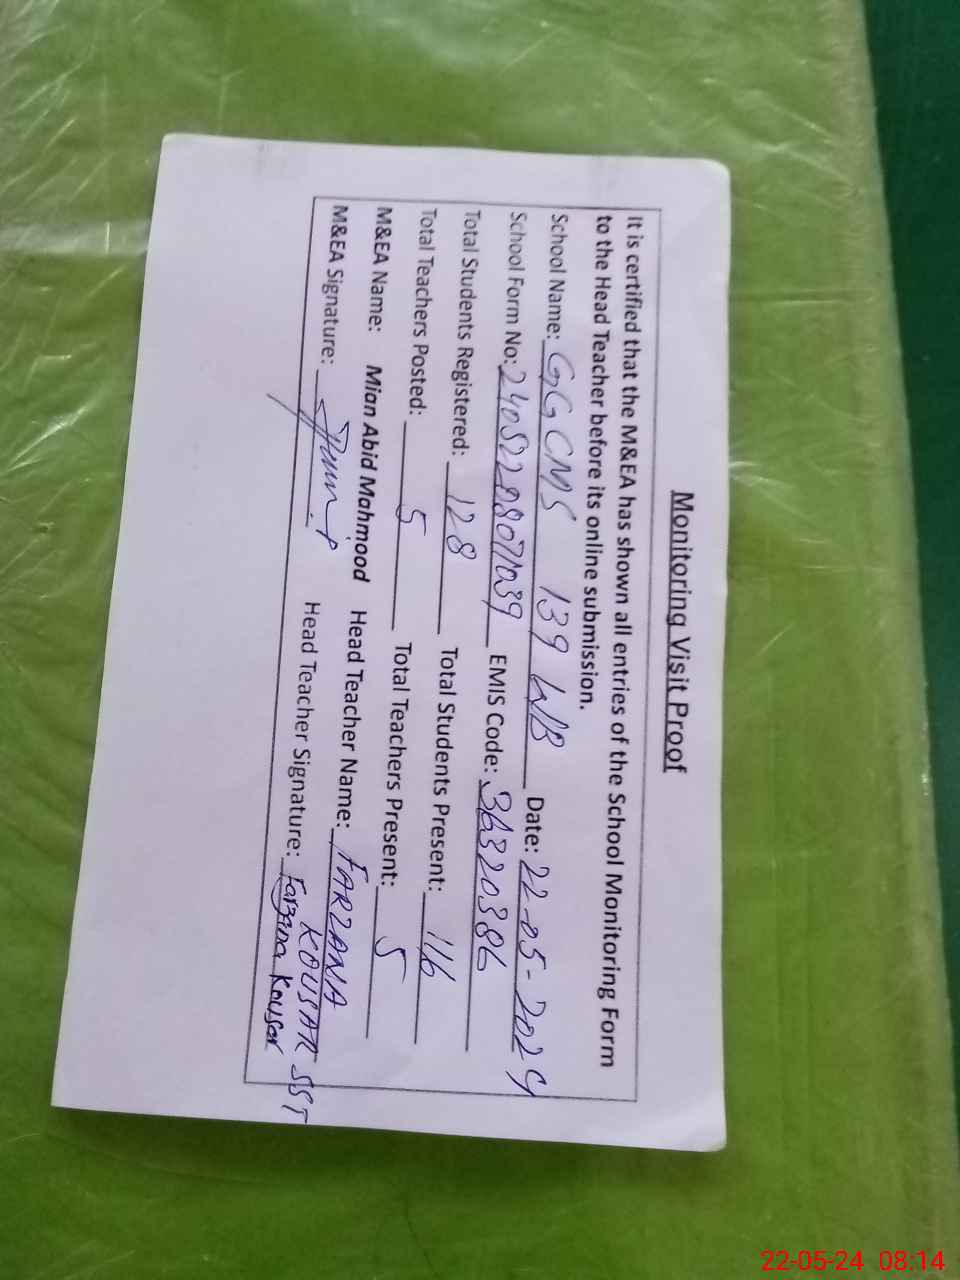 Monitoring Visit Proof
It is certified that the M&EA has shown all entries of the School Monitoring Form
to the Head Teacher before its online submission.
School Name: GGCMS 139 WB Date: 22-05-2024
School Form No: EMIS Code: 36320386
Total Students Registered: 128 Total Students Present: 116
Total Teachers Posted: 5 Total Teachers Present: 5
M&EA Name: Mian Abid Mahmood Head Teacher Name: FARZANA
KOUSAR SST
M&EA Signature: Head Teacher Signature: Farzana Kousar
22-05-24 08:14